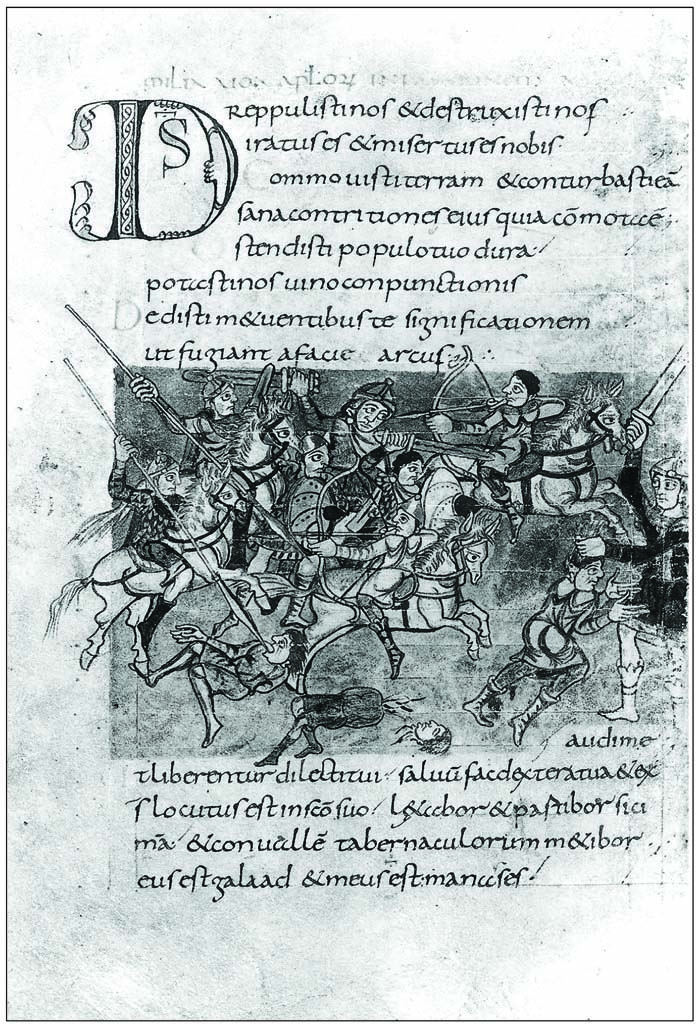 DS
reppulistinos & destruxistinos
iratus es & misertus es nobis
Commouisti terram & conturbasti eā
sana contritiones eius quia cōmota ē
stendisti populo tuo dura
potasti nos uino conpunctionis
Dedisti m&uentibus te significationem
ut fugiant a facie arcus
aud ime
t liberentur dilecti tui saluū fac dextera tua & ex
Ds locutus est in sc̄o suo l&abor & partibor sici
mā & conuallē tabernaculorum m&ibor
eus est galaad & meus est manases